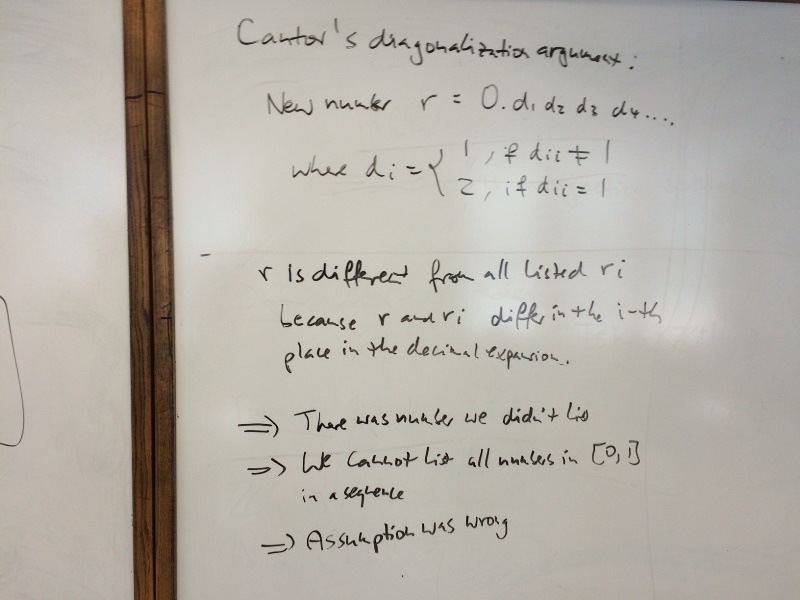 Cantor's diagonalization argument:
New number r = 0.d₁ d₂ d₃ d₄....
where dᵢ = { 1, if dᵢᵢ ≠ 1
2, if dᵢᵢ = 1
r is different from all listed rᵢ
because r and rᵢ differ in the i-th
place in the decimal expansion.
⇒ There was number we didn't list
⇒ We cannot list all numbers in [0,1]
in a sequence
⇒ Assumption was wrong